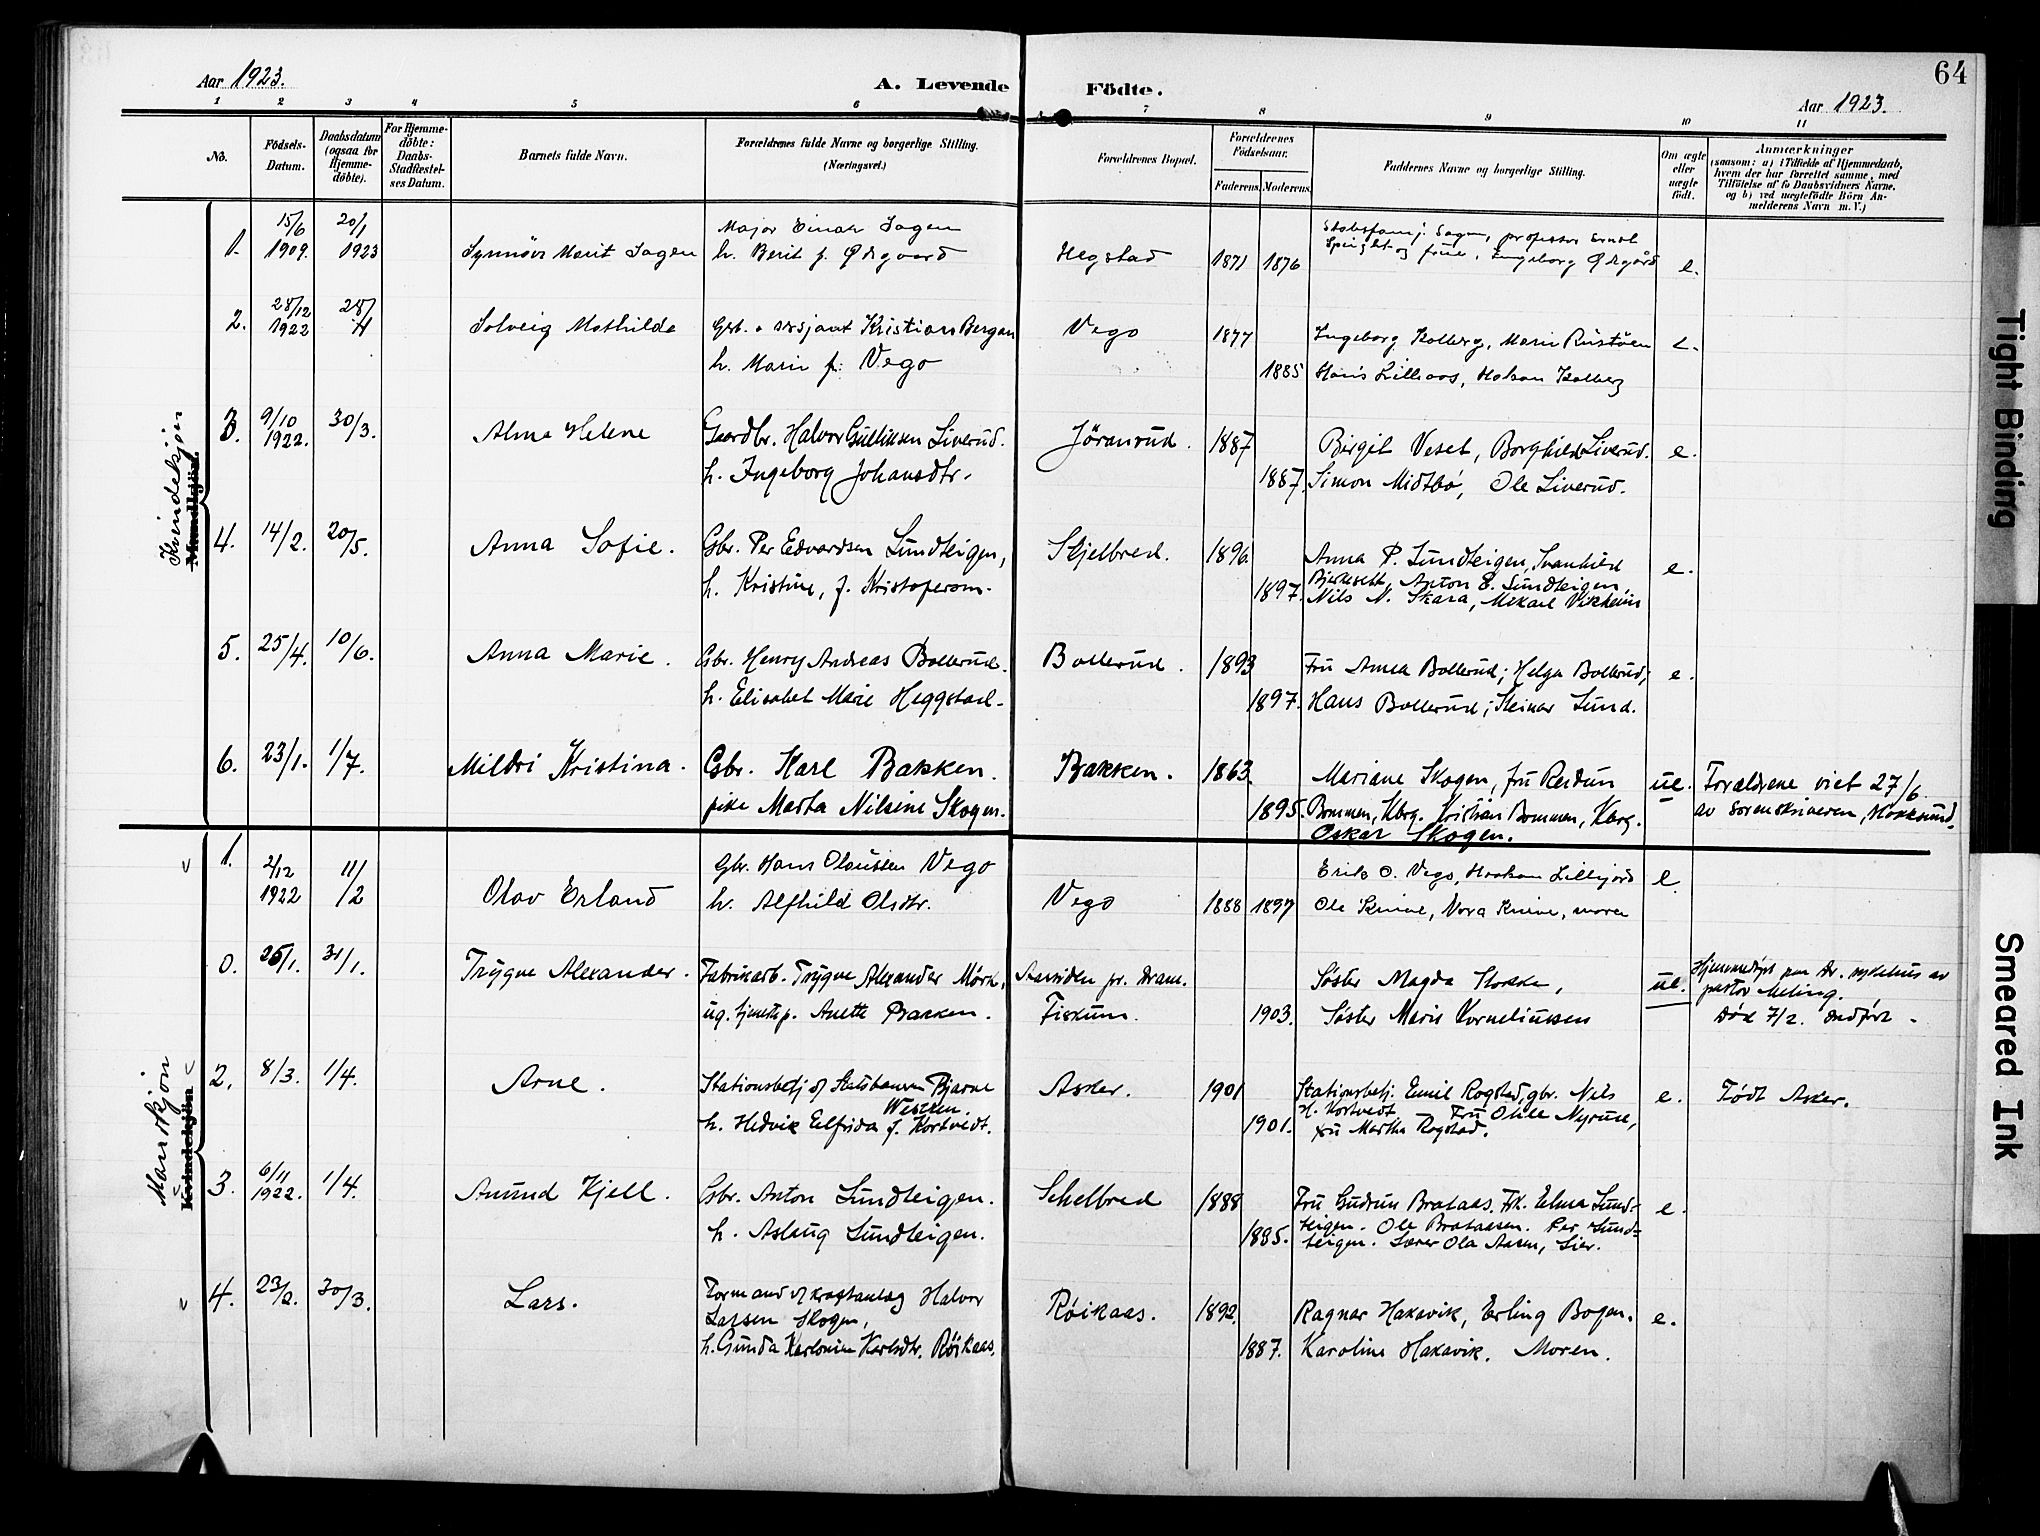 64
Aar 1923.
A. Levende Födte.
Aar 1923.
1 2 3 4 5 6 7 8 9 10 11
No.
Födsels-Datum.
Daabsdatum (ogsaa for Hjemme-döbte).
For Hjemme-döbte: Daabs-Stadfæstel-ses Datum.
Barnets fulde Navn.
Forældrenes fulde Navne og borgerlige Stilling.
(Næringsvei.)
Forældrenes Bopæl.
Forældrenes Födselsaar.
Faderens. Moderens.
Faddernes Navne og borgerlige Stilling.
Om ægte eller uægte födt.
Anmærkninger
(saasom: a) i Tilfælde af Hjemmedaab, hvem der har forrettet samme, med Tilföielse af to Daabsvidners Navne, og b) ved uægtefödte Börn An-melderens Navn m. V.)
Kvindekjön
Mandkjön.
1. 15/6 1909. 20/1 1923 Synnöve Marit Sagen
Major Einar Sagen
h. Berit f. Ødegaard
Hegstad 1871 1876
Sagen, professor
og frue, Ingeborg Ødegård e.
2. 28/12 1922 Solveig Mathilde
Kristian Bergan
h. Marie f. Vego
Vego 1877 1885
Ingeborg Kolberg, Marie Rustöen
Hans Lilleaas, Hakon Kolberg
3. 9/10 1922. 30/3. Alma Helene
Gaardbr. Halvor Gulliksen Liverud.
h. Ingeborg Johansdtr.
Jöranrud. 1887 1887.
Birgit Veset, Borghild Liverud. e.
Simon Midtbö, Ole Liverud.
4. 14/2. 20/5. Anna Sofie.
Gbr. Per Edvardsen Sundteigen,
h. Kristine, f. Kristofersen.
Skjelbred. 1896. 1897.
Anna P. Sundteigen, Svanhild
Bjerkesett, Anton E. Sundteigen, e.
Nils N. Skara, Mikael Vikheim
5. 25/4. 10/6. Anna Marie.
Gbr. Henry Andreas Bollerud.
h. Elisabet Marie Heggstad.
Bollerud. 1893 1897.
Fru Anna Bollerud; Helga Bollerud; e.
Hans Bollerud; Steinar Lund.
6. 23/1. 1/7. Mildri Kristina.
Gbr. Karl Bakken.
pike Marta Nilsine Skogen.
Bakken. 1863. 1895.
Mariane Skogen, fru Reidun
Bommen, Kbrg. Kristian Bommen, Kbrg.
Oskar Skogen.
ue. Forældrene viet 27/6
av sorenskriveren, Hokksund.
Mandkjön
Kvindekjön
1. 2/12 1922 11/2 Olav Erland
Gbr. Hans Olaussen Vego
h. Alfhild Olsdtr.
Vego 1888 1897
Erik O. Vego, Haakon Lillejord e.
Ole Knive, Nora Knive, moren
0. 31/1. Trygve Alexander.
Fabrikarb. Trygve Alexander Mörk,
ug. tjenestp. Anette Bakken.
pr. Dram.
Fiskum. 1903.
Söster Magda Hokke,
Söster Marie Korneliussen
ue. Hjemmedöpt paa Dr. sykehus av
pastor Meling.
Död 7/2.
2. 8/3. 1/4. Arne.
Stationsbetj. v/ Statsbanen Bjarne
Westen.
h. Hedvik Elfrida f. Kortvedt.
Asker. 1901 1901.
Stationsbetj. Emil Rogstad, gbr. Nils
H. Kortvedt. Fru Othile Nyruse,
fru Martha Rogstad.
e. Födt Asker.
3. 6/11 1922. 1/4. Amund Kjell.
Gbr. Anton Sundteigen.
h. Aslaug Sundteigen.
Schelbred 1888 1885.
Fru Gudrun Brataas. Frk. Elma Sund-
teigen. Ole Brataasen. Per Sund-
teigen. Lærer Ola Aasen, Lier.
e.
4. 23/2. 30/3. Lars.
Formand v/ kraftanlæg Halvor
Larsen Skogen,
h. Gunda Karlonine Karlsdtr. Röikaas.
Röikaas. 1892. 1887.
Ragnar Hakavik, Erling Bogen. e.
Karoline Hakavik. Moren.
Tight Binding
Smeared Ink